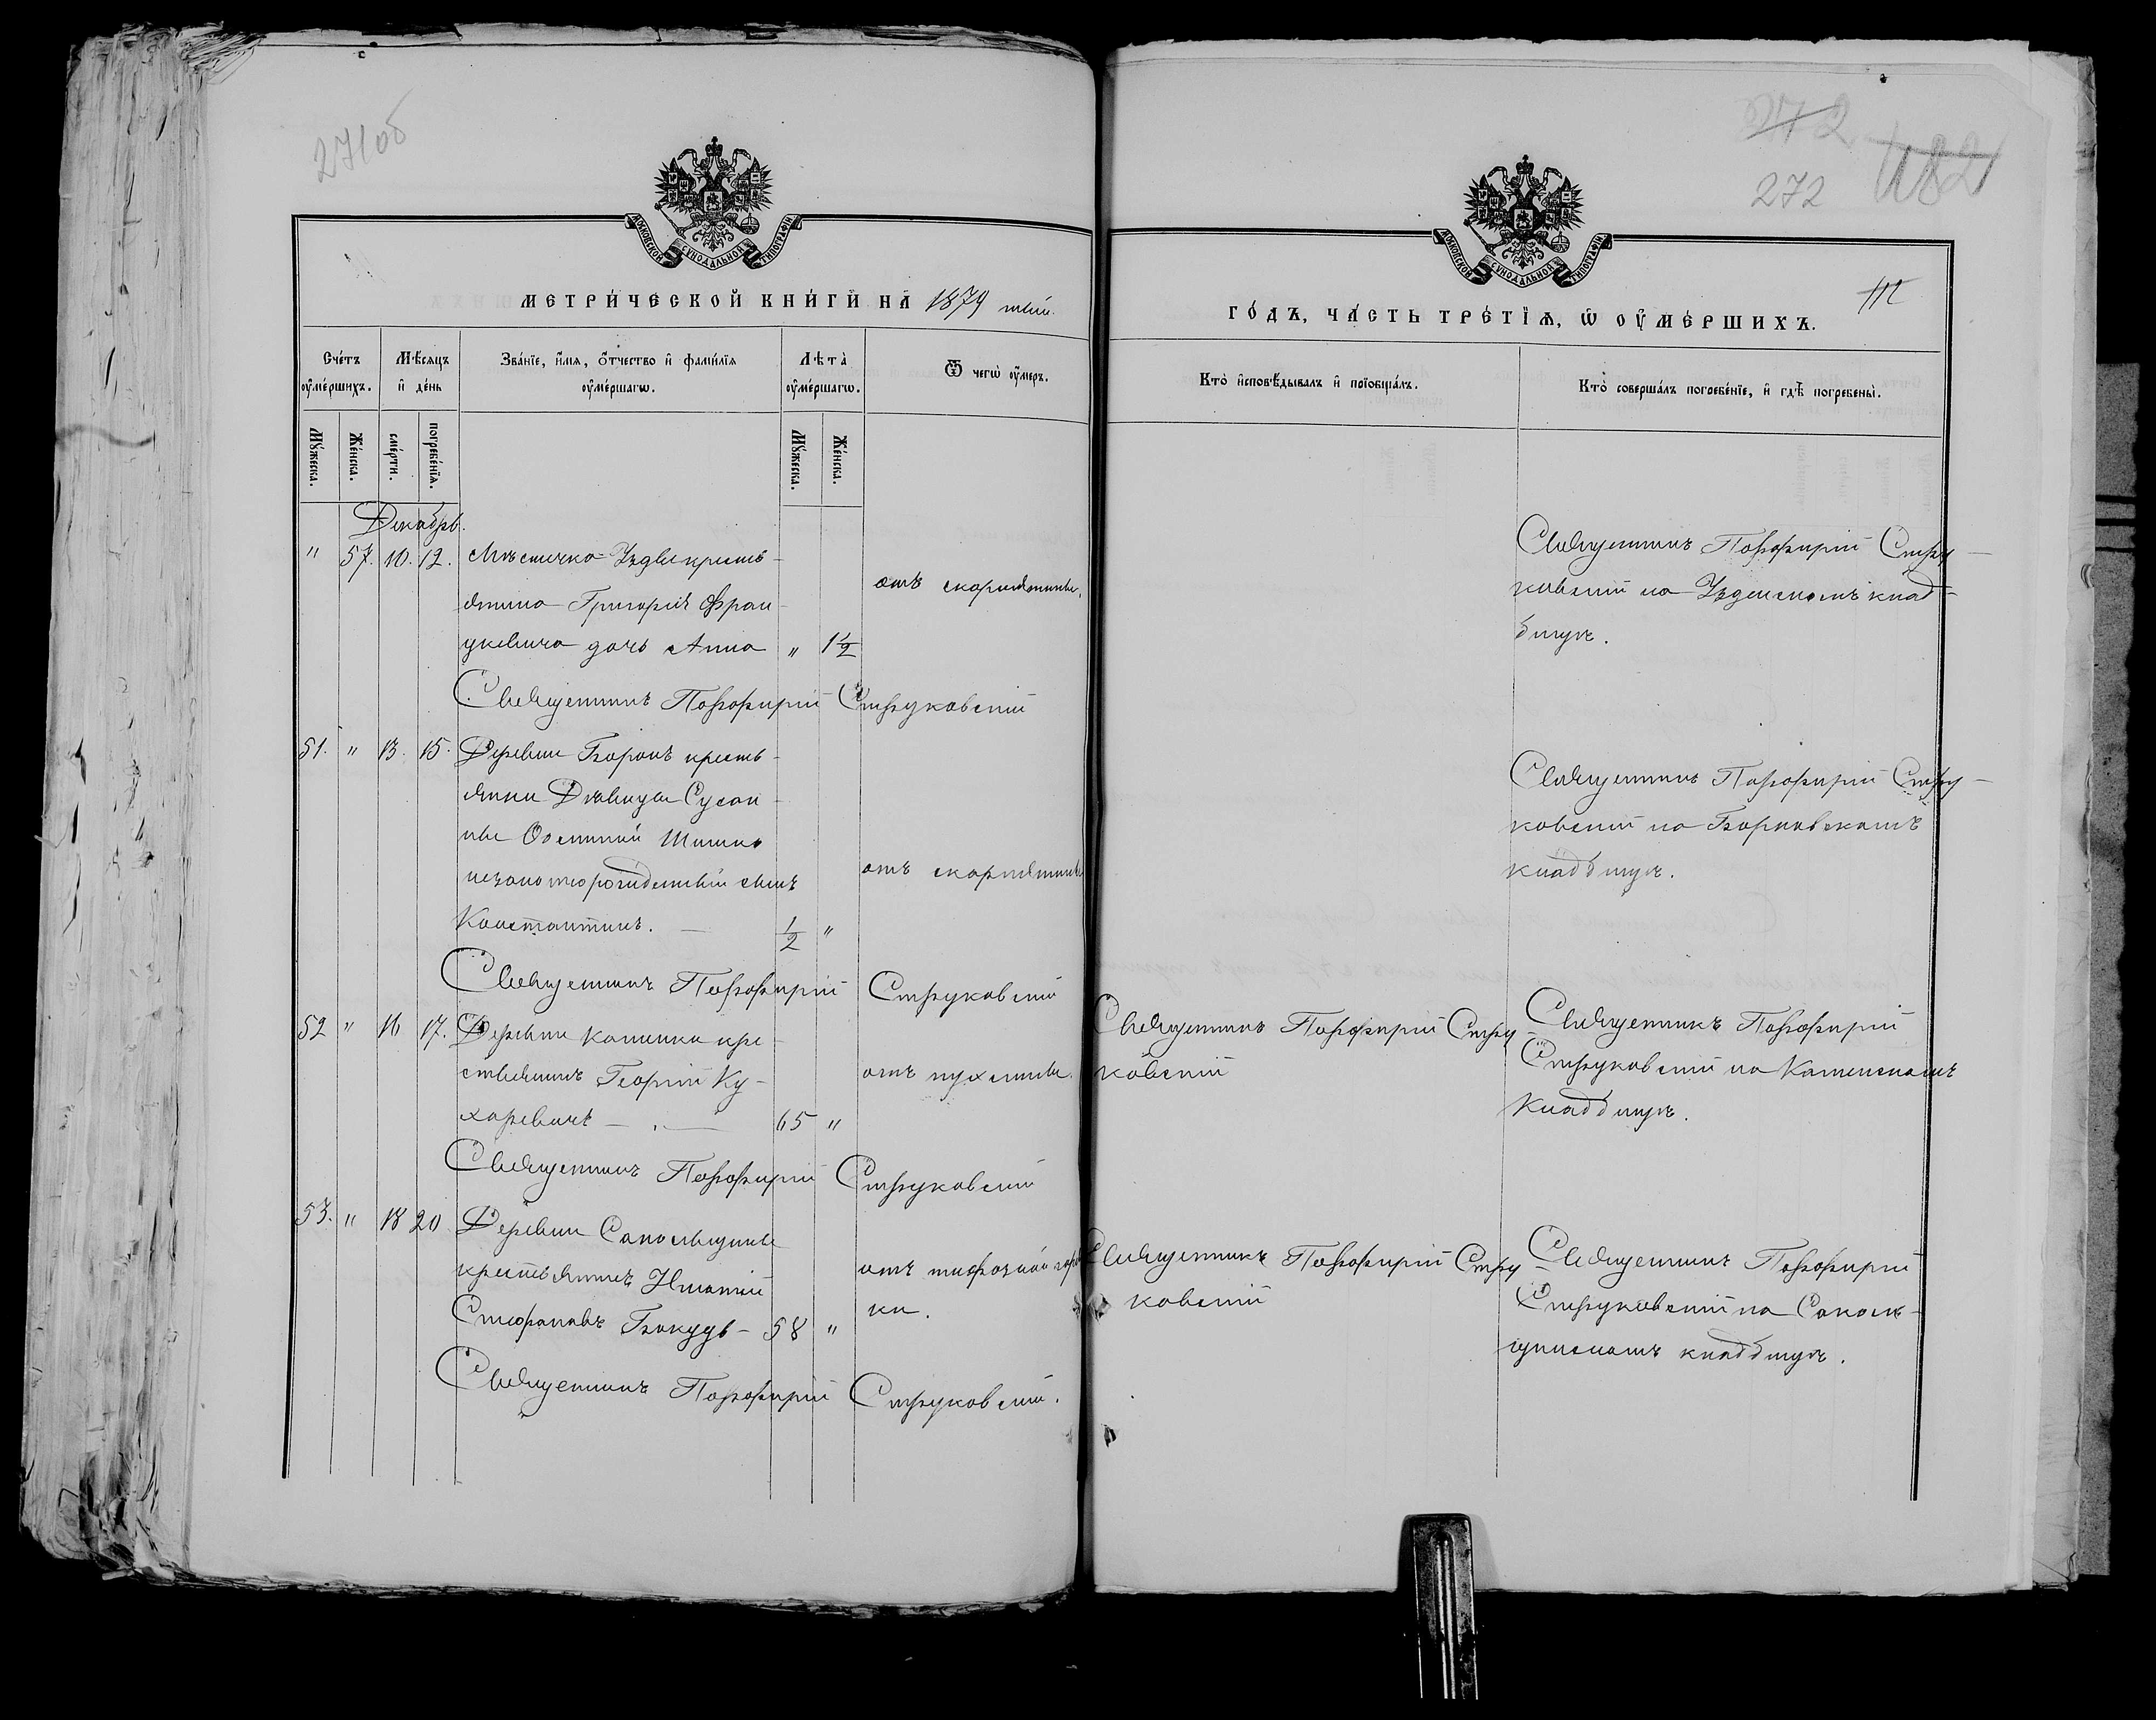 271об
272
272
182
112
МОСКОВСКОЙ СѴНОДАЛЬНОЙ ТИПОГРАФІИ
МЕТРИ́ЧЕСКОЙ КНИ́ГИ НА̀ 1879 тый.
Сче́тъ оу҆ме́ршихъ.
Мѣ́сяцъ и҆ де́нь
Зва́нїе, и҆́мѧ, ѻ҆́тчество и҆ фами́лїѧ оу҆ме́ршагѡ.
Лѣ́та̀ оу҆ме́ршагѡ.
Ѿ чегѡ̀ оу҆́меръ.
Мꙋ́жеска.
Же́нска.
сме́рти.
погребе́нїѧ.
Мꙋ́жеска.
Же́нска.
Декабрь.
" 57. 10. 12. Мѣстечка Узды кресть-
янина Григорія Фран-
цкевича дочь Анна " 1½
отъ скарлятины.
Священникъ Порфирій Струковскій
51. " 13. 15. Деревни Боронъ кресть-
янки Дѣвицы Сусан-
ны
незаконнорожденный сынъ
Константинъ. — ½ "
отъ скарлятины
Священникъ Порфирій Струковскій
52 " 16 17. Деревни Каменки кре-
стьянинъ Георгій Ку-
харевичъ — 65 "
отъ пухлины.
Священникъ Порфирій Струковскій
53. " 18 20 Деревни Саковщины
крестьянинъ Игнатій
Стефановъ — 58 "
отъ тифозной горяч
ки.
Священникъ Порфирій Струковскій.
МОСКОВСКОЙ СѴНОДАЛЬНОЙ ТИПОГРАФІИ
ГО́ДЪ, ЧА́СТЬ ТРЕ́ТЇѦ, Ѡ҆ ОУ҆МЕ́РШИХЪ.
Кто̀ и҆сповѣ́дывалъ и҆ прїѡбща́лъ.
Кто̀ соверша́лъ погребе́нїе, и҆ гдѣ̀ погребены̀.
Священникъ Порфирій Стру-
ковскій на Узденскомъ клад-
бищѣ.
Священникъ Порфирій Стру-
ковскій на Борковскомъ
кладбищѣ.
Священникъ Порфирій Стру-
ковскій
Священникъ Порфирій
Струковскій на Каменскомъ
Кладбищѣ.
Священникъ Порфирій Стру-
ковскій
Священникъ Порфирій
Струковскій на Саков-
щинскомъ кладбищѣ.